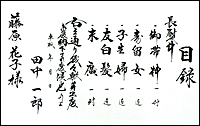 目録
長熨斗
御帯料 一封
寿留女 一連
子生婦 一連
友白髪 一連
末広 一対
右之通り幾久敷芽出度
御納下され度候也
平成 年 月 日
田中一郎
藤原花子様